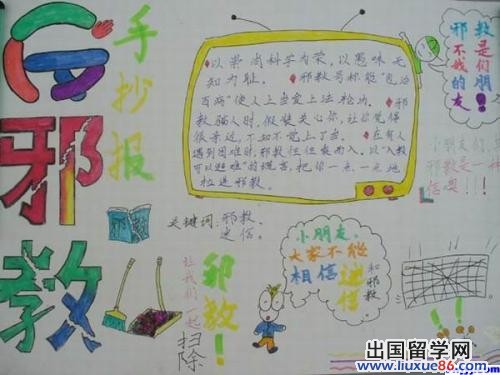 邪教
手抄报
以崇尚科学为荣，以愚昧无
知为耻。邪教号称能“包治
百病”使人上当爱上法轮功。邪
教骗人时，假装关心你，让你觉得
很亲近，不知不觉上了当。在有人
遇到困难时，邪教但但表而入，以“入教
可以避难”的谎言，把你一点一点地
拉进邪教。
邪教是
不我们
的朋
友！
小朋友们，
邪教是一种
迷信！！！
关键词：邪教、
迷信。
让我们一起
扫除
邪教！
小朋友，
大家不能
相信迷信
和邪教
！！
出国留学网
www.liuxue86.com